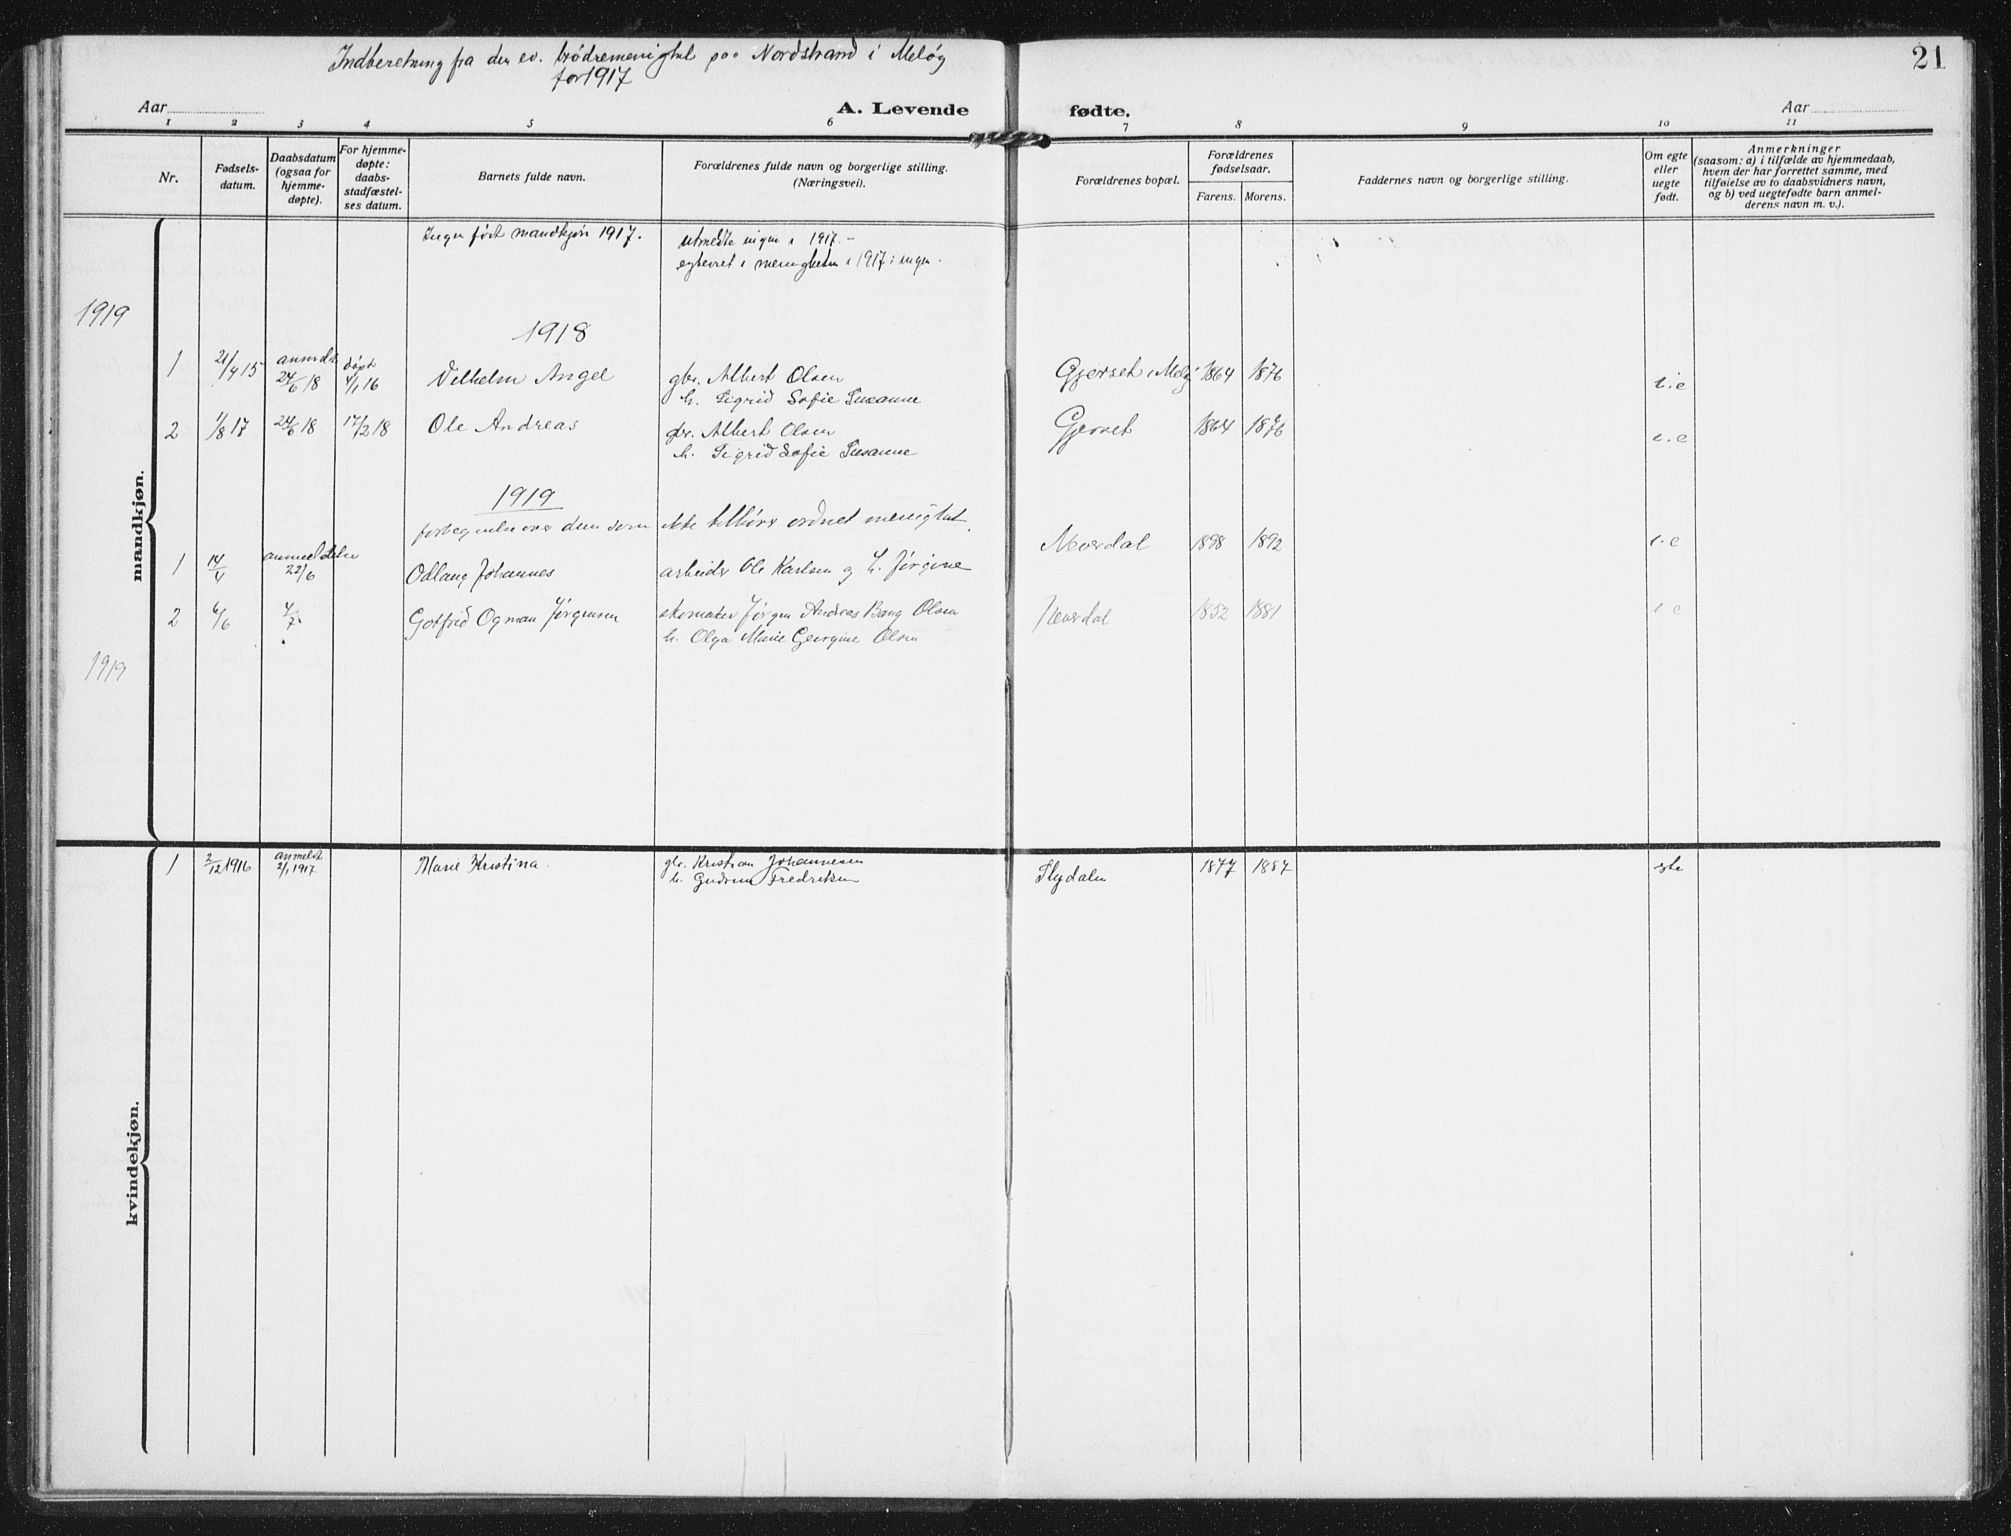 21
Indberetning fra den ev. brødremenighet paa Nordstrand i Meløy
for 1917
Aar
A. Levende fødte.
Aar
1 2 3 4 5 6 7 8 9 10 11
Nr.
Fødsels-
datum.
Daabsdatum
(ogsaa for
hjemme-
døpte).
For hjemme-
døpte:
daabs-
stadfæstel-
ses datum.
Barnets fulde navn.
Forældrenes fulde navn og borgerlige stilling.
(Næringsvei).
Forældrenes bopæl.
Forældrenes
fødselsaar.
Farens. Morens.
Faddernes navn og borgerlige stilling.
Om egte
eller
uegte
født.
Anmerkninger
(saasom: a) i tilfælde av hjemmedaab,
hvem der har forrettet samme, med
tilføielse av to daabsvidners navn,
og b) ved uegtefødte barn anmel-
derens navn m. v.).
mandkjøn.
Ingen født mandkjøn 1917.
utmeldte ingen i 1917.-
egteviet i menigheten i 1917: ingen.
1919
1918
1 21/4 15 anmeldt 24/6 18 døpt 4/1 16 Vilhelm Angel gbr. Albert Olsen Gjerset i Meløy 1864 1876 i.e
h. Sigrid Sofie Susanne
2 1/8 17 24/6 18 17/2 18 Ole Andreas gbr. Albert Olsen Gjerset 1864 1876 i.e
h. Sigrid Sofie Susanne
1919
fortegnelse over dem som ikke tilhører ordnet menighet.
1 14/4 anmeldelse 22/6 Odlaug Johannes arbeider Ole Karlsen og h. Jørgine Neverdal 1898 1892 i.e
2 6/6 4/7. Gotfrid Ogman Jørgensen skomaker Jørgen Andreas Bang Olsen Neverdal 1852 1881 i.e
h. Olga Marie Georgine Olsen
1919
kvindekjøn.
1 2/12 1916 anmeldt 2/1 1917 Marie Kristina. gbr. Kristian Johannesen 1877 1887 egte
h. Gudrun Fredriksen